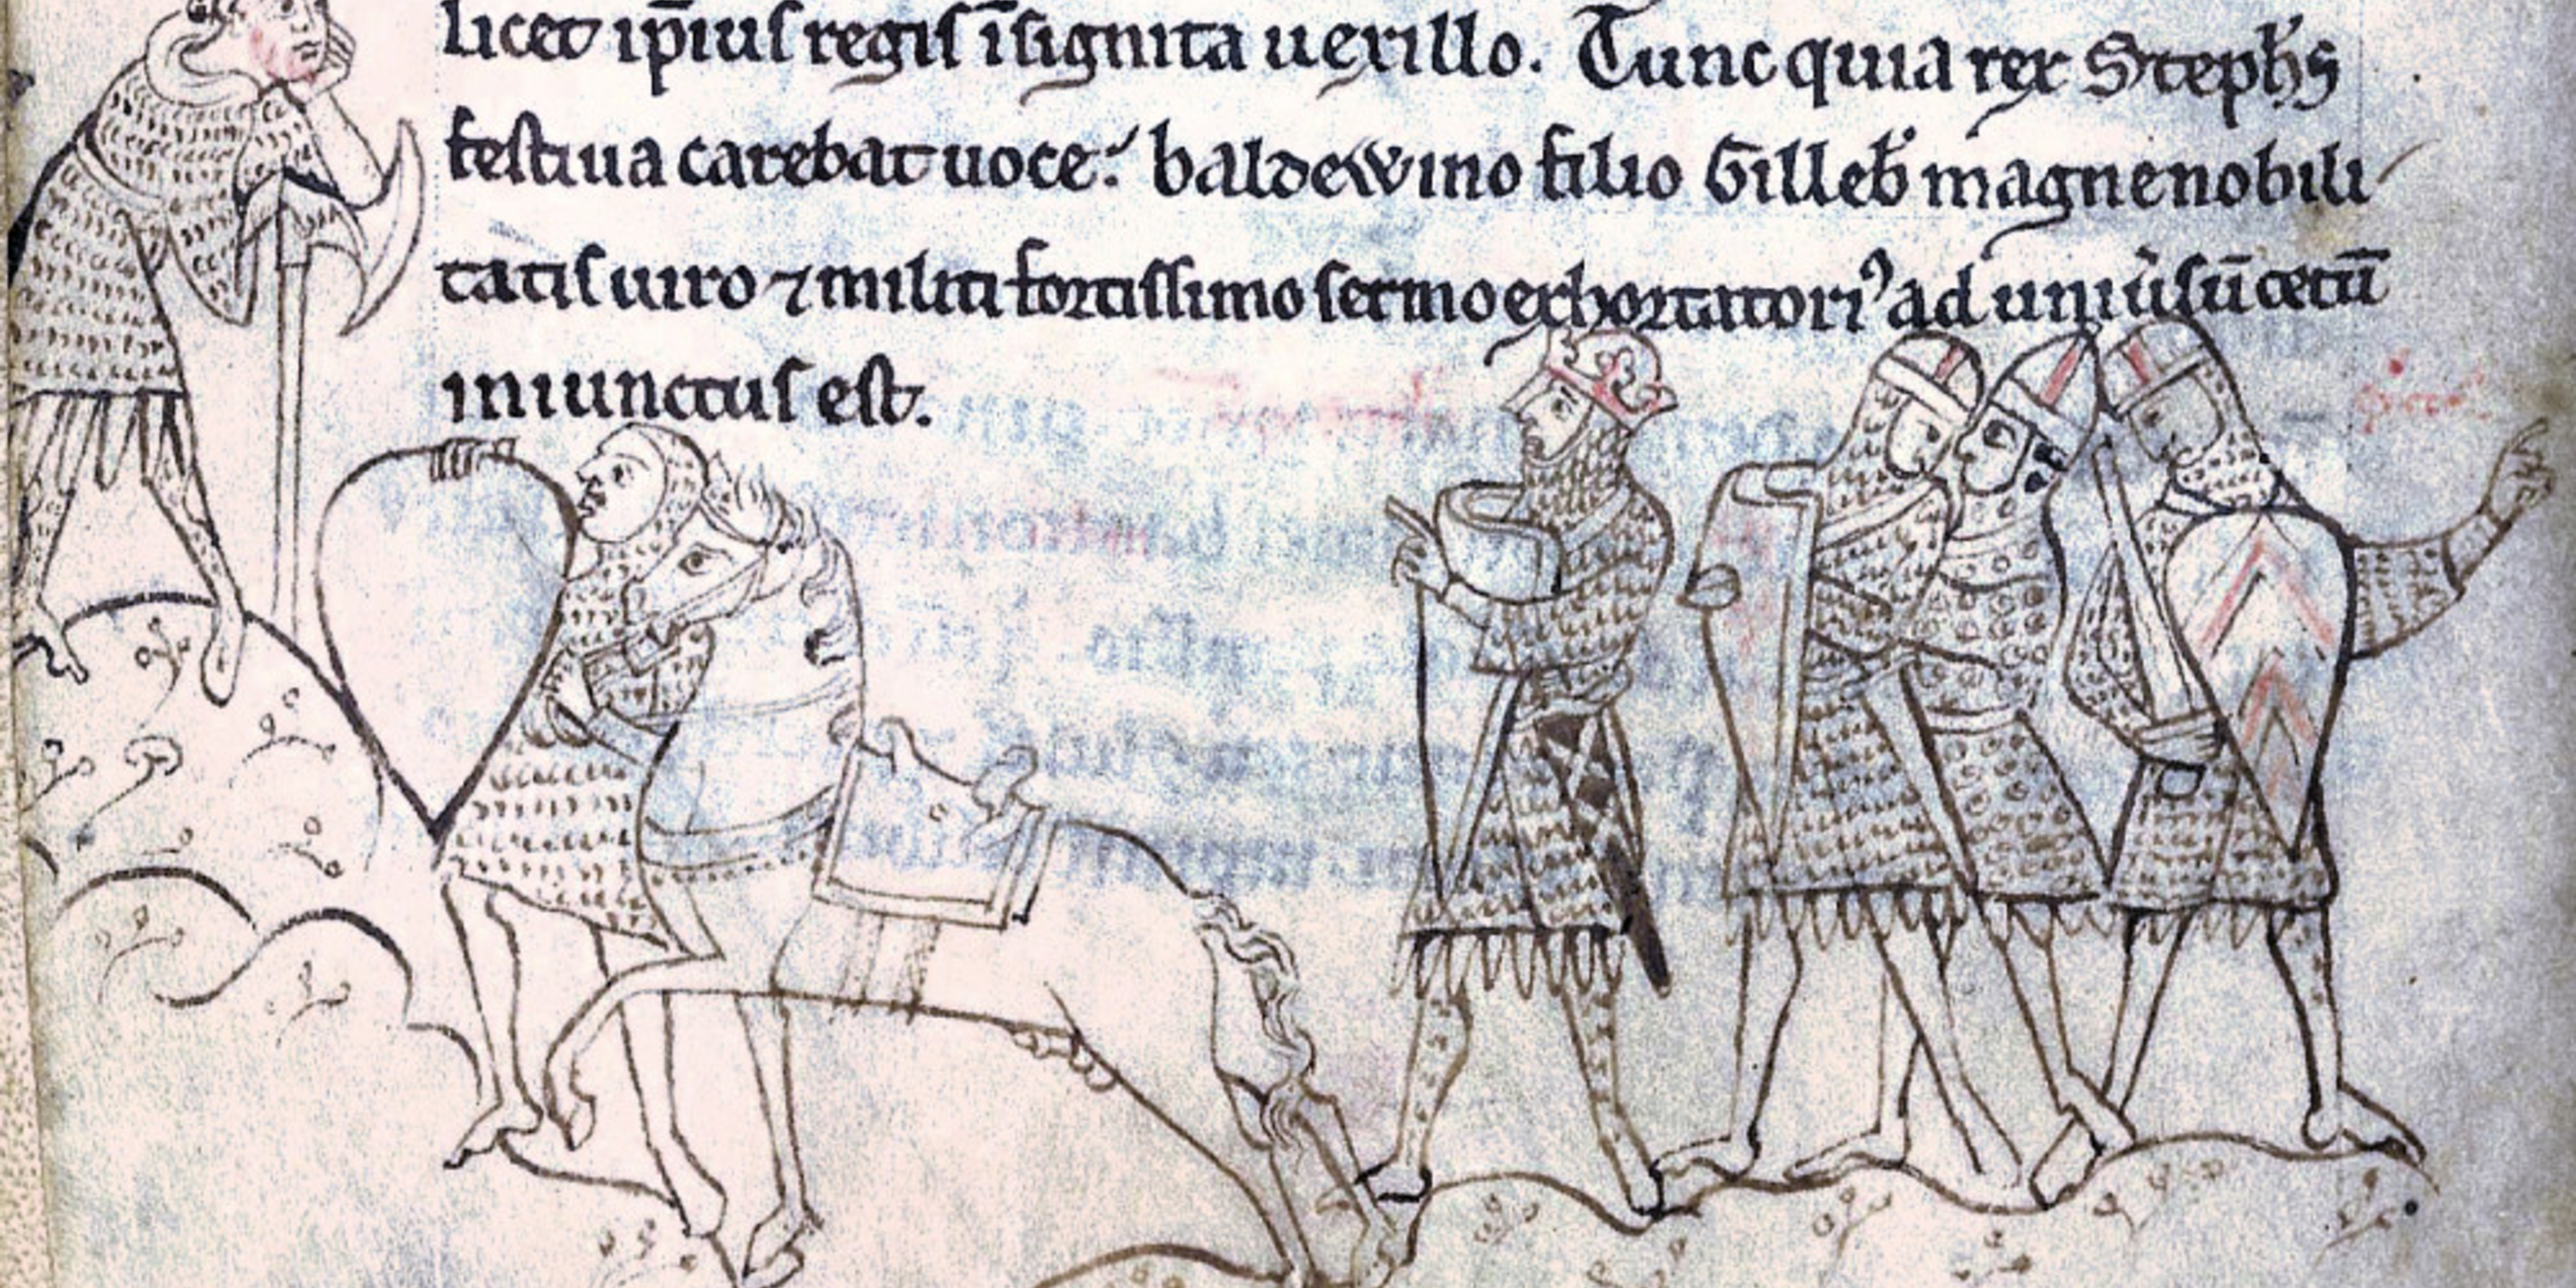 licet ip̄ius regis īsignita uexillo. Tunc quia rex Steph̄s
festiua carebat uoce: baldewino filio Gilleb̾ magne nobili
tatis uiro ⁊ militi fortissimo sermo exhortatori⁹ ad uniu̾sū cetū
iniunctus est.